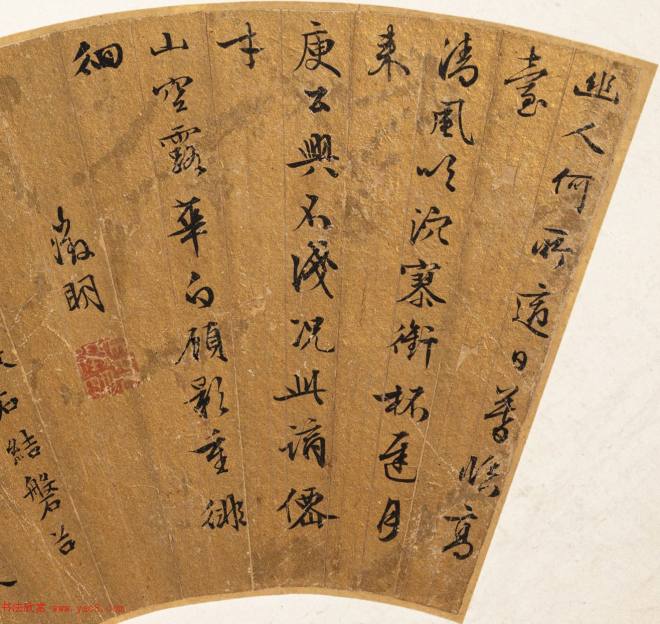 幽人何所適日暮臨高
臺
清風吹泬寥銜杯遲月
來
庾公興不淺況此謫僊
才
山空露華白顧影重徘
徊
徵明
石結磐
书法欣赏 www.yac8.com